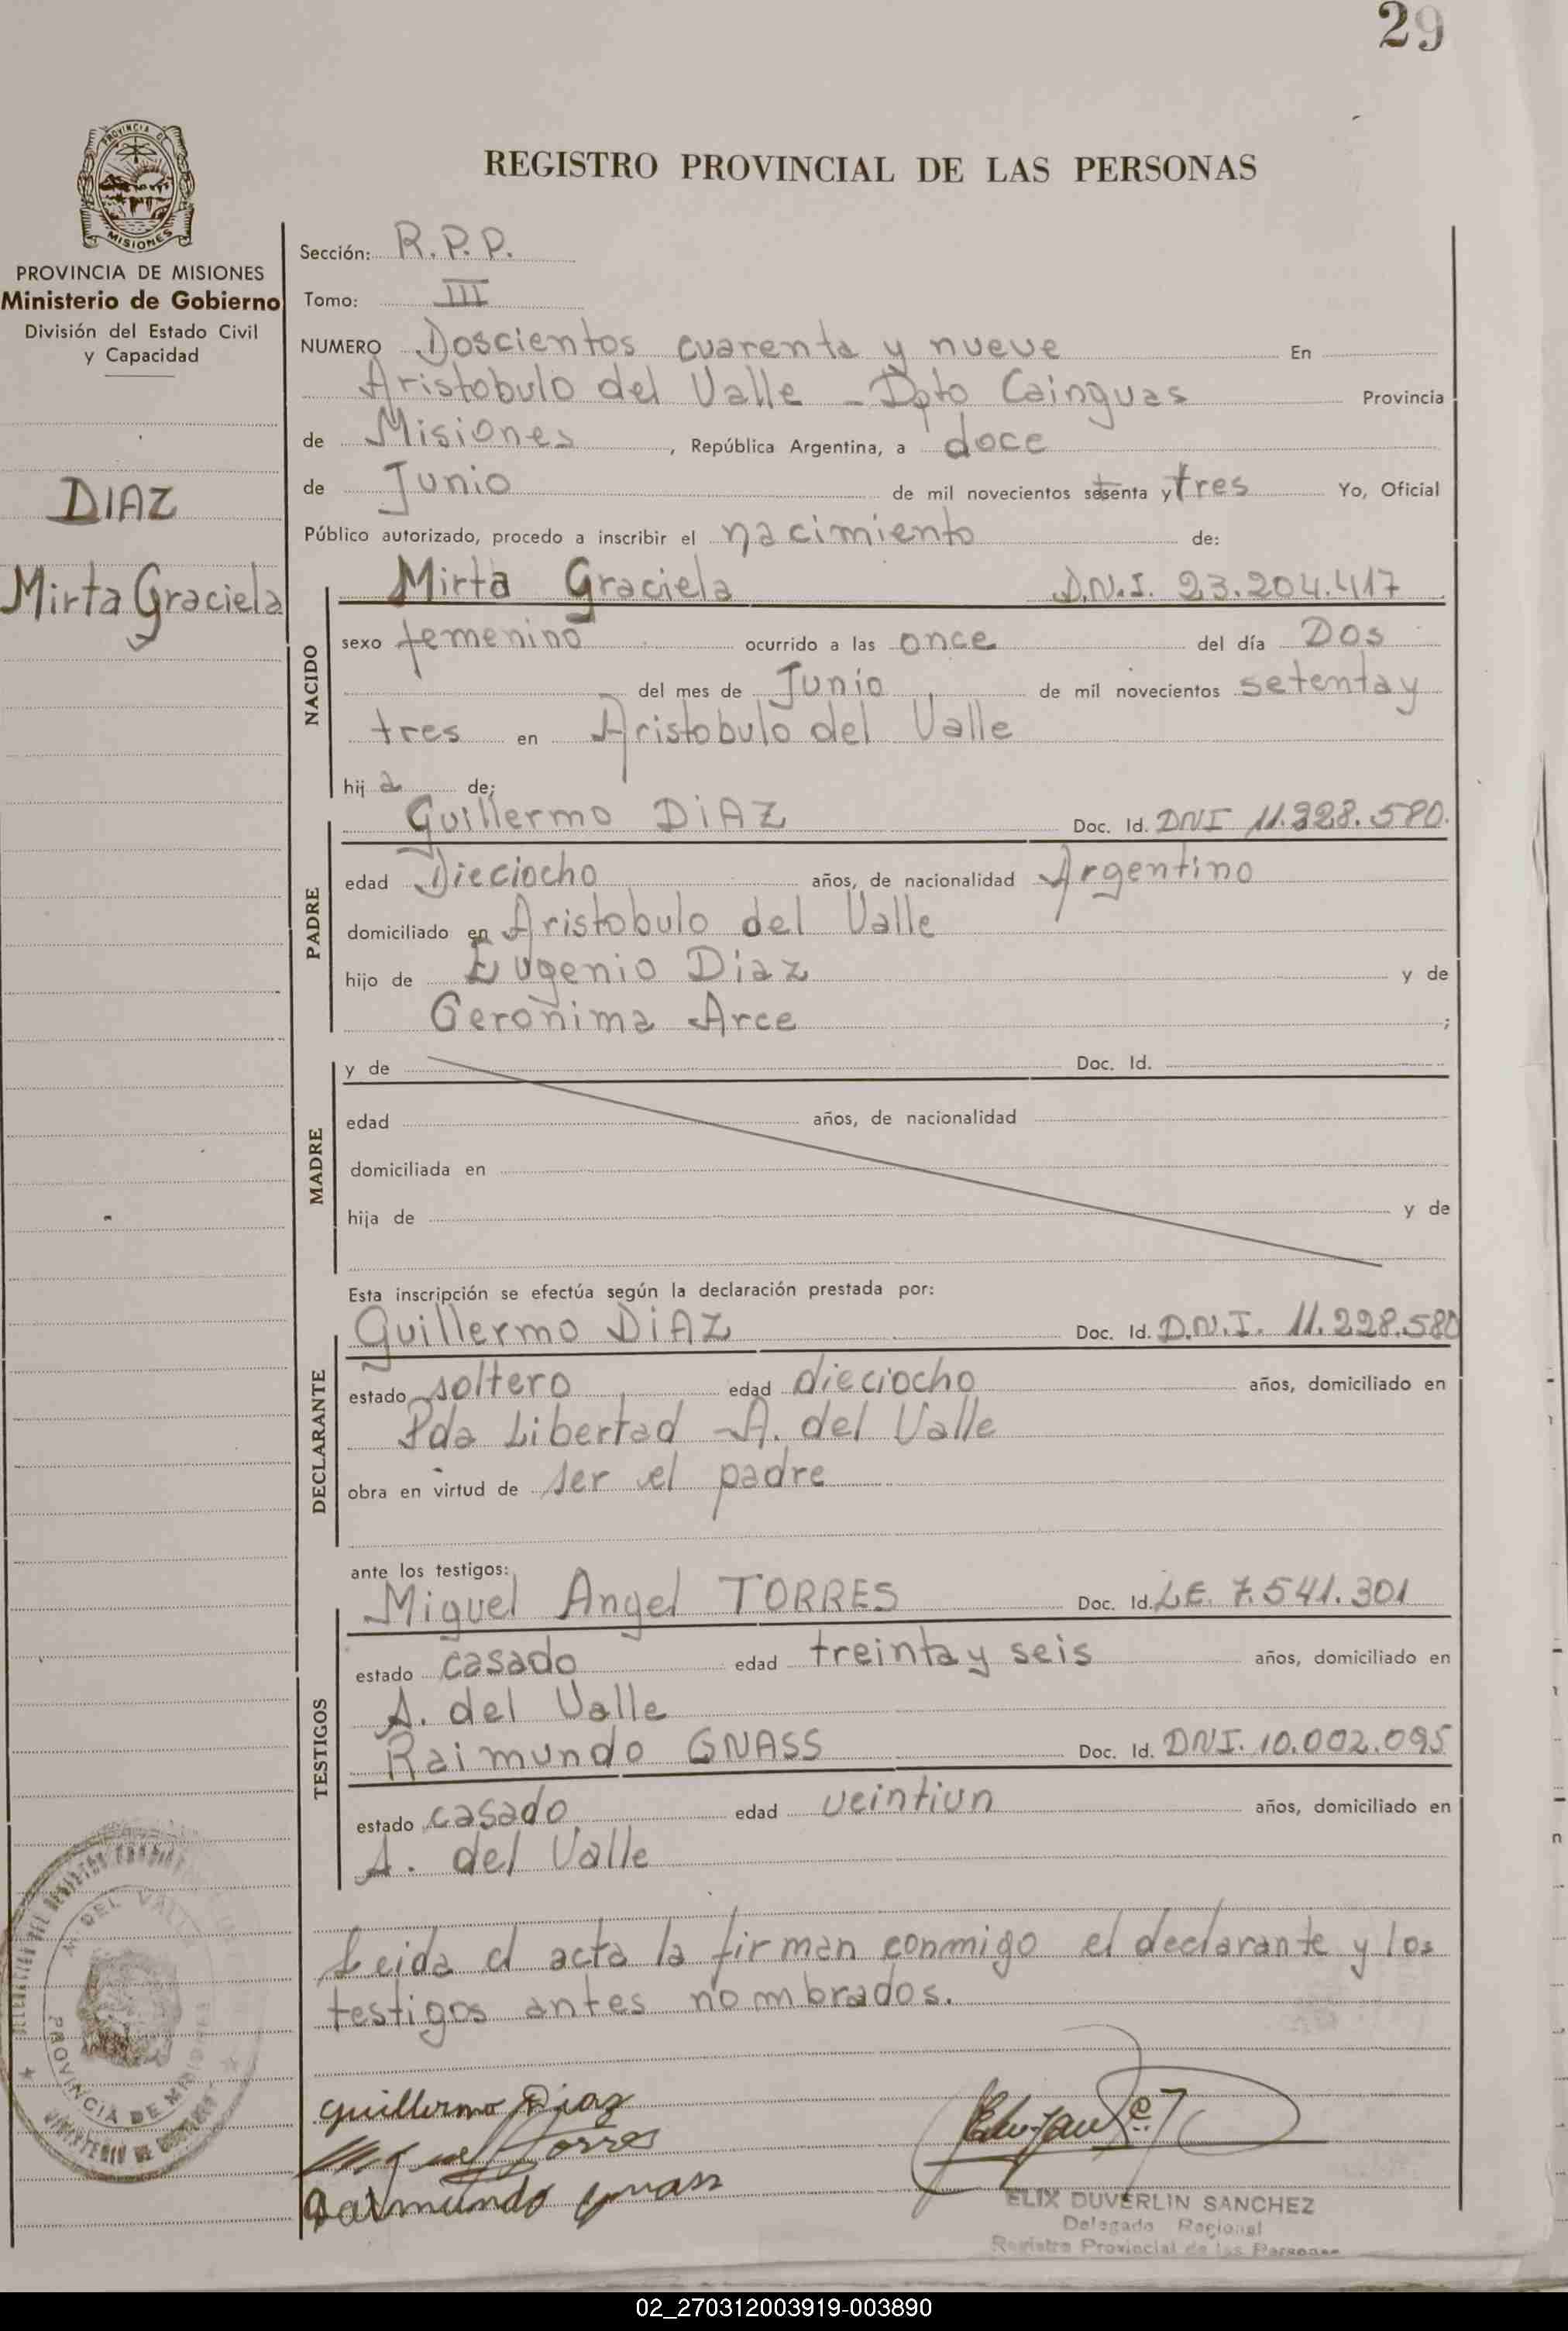 29
PROVINCIA DE
MISIONES
PROVINCIA DE MISIONES
Ministerio de Gobierno
División del Estado Civil
y Capacidad
DIAZ
Mirta Graciela
REGISTRO PROVINCIAL DE LAS PERSONAS
Sección: R.P.P.
Tomo: III
NUMERO Doscientos cuarenta y nueve En
Aristobulo del Valle - Dpto Cainguas Provincia
de Misiones, República Argentina, a doce
de Junio de mil novecientos setenta y tres Yo, Oficial
Público autorizado, procedo a inscribir el nacimiento de:
NACIDO
Mirta Graciela D.N.I. 23.204.417
sexo femenino ocurrido a las once del día Dos
del mes de Junio de mil novecientos setenta y
tres en Aristobulo del Valle
hij a de;
PADRE
Guillermo DIAZ Doc. Id. DNI 11.328.580.
edad Dieciocho años, de nacionalidad Argentino
domiciliado en Aristobulo del Valle
hijo de Eugenio Diaz y de
Geronima Arce ;
MADRE
y de Doc. Id.
edad años, de nacionalidad
domiciliada en
hija de y de
Esta inscripción se efectúa según la declaración prestada por:
DECLARANTE
Guillermo DIAZ Doc. Id. D.N.I. 11.228.580
estado soltero edad dieciocho años, domiciliado en
Pda Libertad - A. del Valle
obra en virtud de ser el padre
ante los testigos:
TESTIGOS
Miguel Angel TORRES Doc. Id. LE. 7.541.301
estado casado edad treinta y seis años, domiciliado en
A. del Valle
Raimundo GNASS Doc. Id. DNI. 10.002.095
estado casado edad veintiun años, domiciliado en
A. del Valle
Leida el acta la firman conmigo el declarante y los
testigos antes nombrados.
DEL VALLE
PROVINCIA DE MISIONES
MINISTERIO DE GOBIERNO
Guillermo Diaz
Miguel Torres
Raimundo Gnass
ELIX DUVERLIN SANCHEZ
Delegado Regional
Registro Provincial de las Personas
02_270312003919-003890